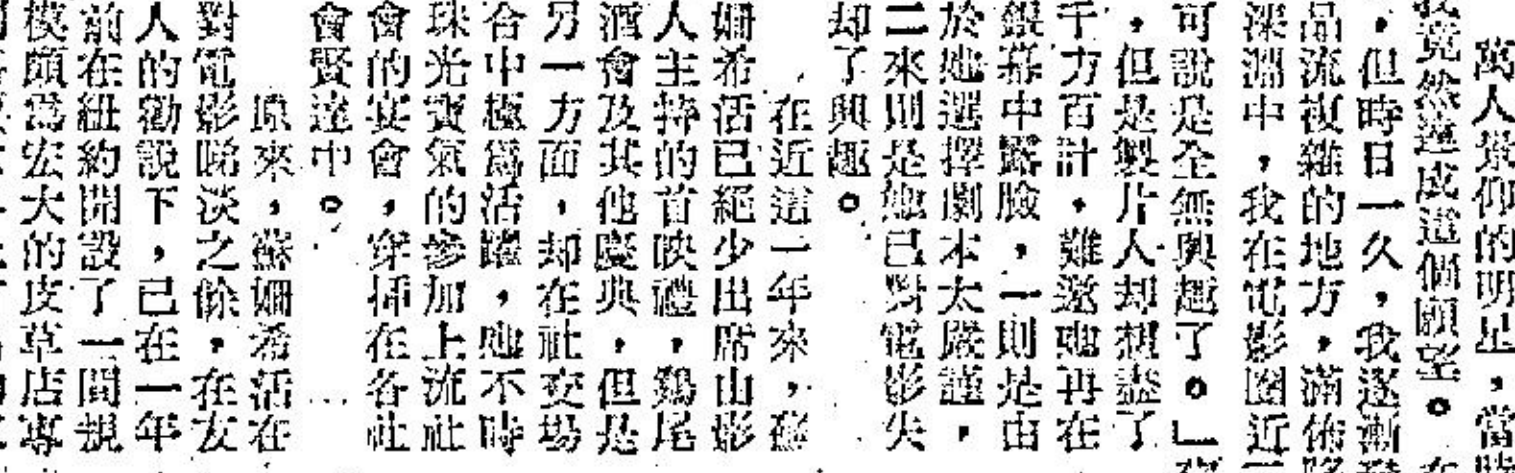 萬人景仰的明星，當
竟然達成這個願望。在
，但時日一久，我逐漸
品流複雜的地方，滿佈
深淵中，我在電影圈近
可說是全無興趣了。」
，但是製片人却想盡了
千方百計，難邀她再在
銀幕中露臉，一則是由
於她選擇劇本太嚴謹，
二來則是她已對電影失
却了興趣。
在近這一年來，蘇
姍希活已絕少出席由影
人主持的首映禮，鷄尾
酒會及其他慶典，但是
另一方面，却在社交場
合中極爲活躍，她不時
珠光寶氣的參加上流社
會的宴會，穿插在各社
會賢達中。
原來，蘇姍希活在
對電影睇淡之餘，在友
人的勸說下，已在一年
前在紐約開設了一間規
模頗爲宏大的皮草店專